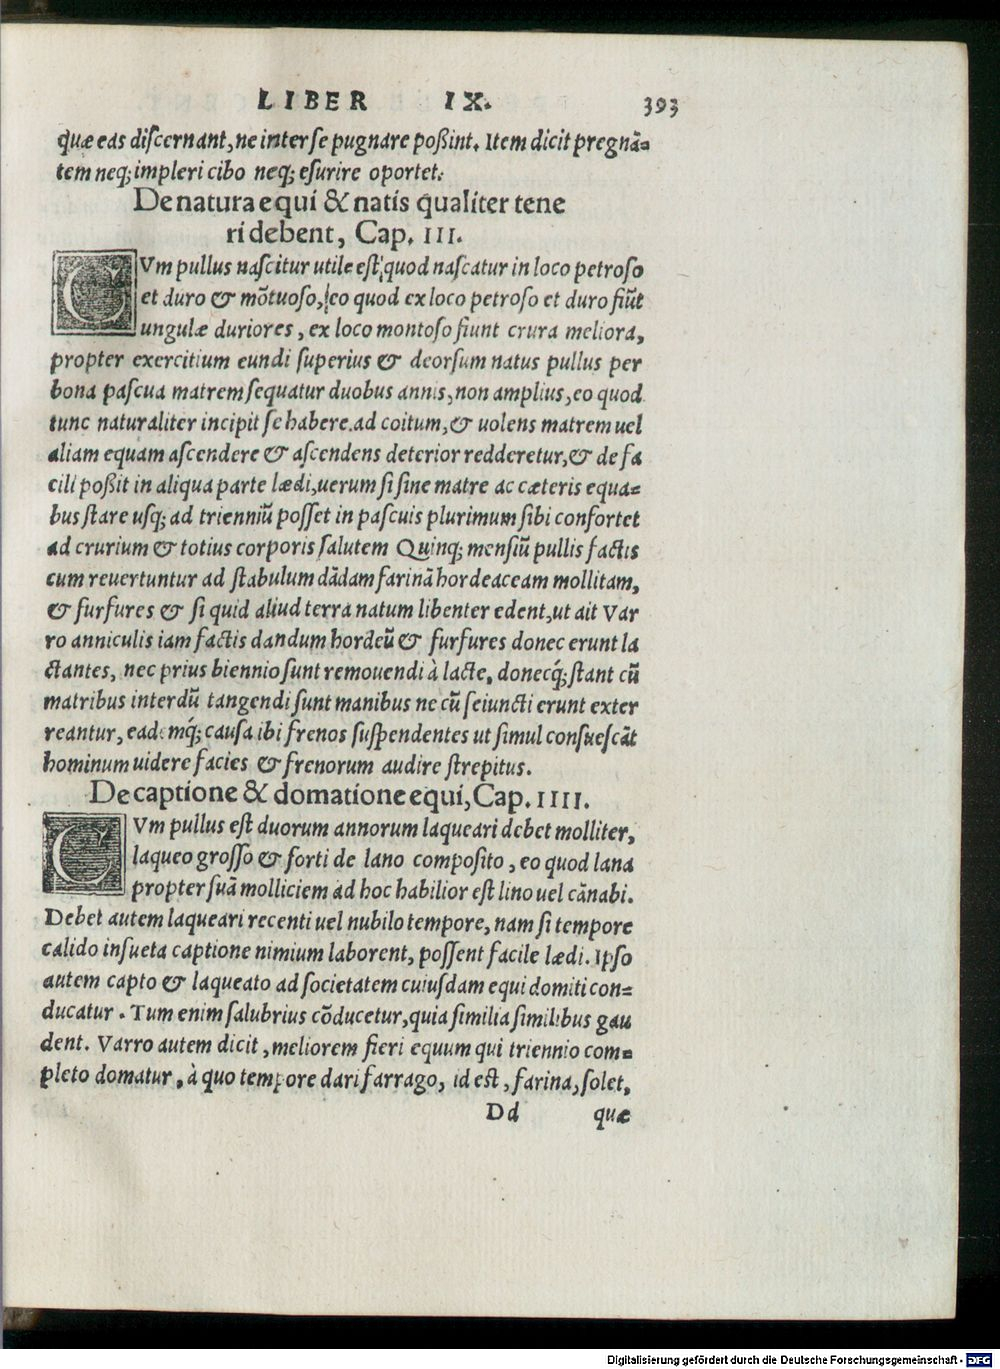 LIBER IX. 393
quæ eas discernant, ne inter se pugnare poßint. Item dicit pregnā=
tem neq; impleri cibo neq; esurire oportet.
De natura equi & natis qualiter tene
ri debent, Cap. III.
CVm pullus nascitur utile est quod nascatur in loco petroso
et duro & mōtuoso, eo quod ex loco petroso et duro fiūt
ungulæ duriores, ex loco montoso fiunt crura meliora,
propter exercitium eundi superius & deorsum natus pullus per
bona pascua matrem sequatur duobus annis, non amplius, eo quod
tunc naturaliter incipit se habere ad coitum, & uolens matrem uel
aliam equam ascendere & ascendens deterior redderetur, & de fa
cili poßit in aliqua parte lædi, uerum si sine matre ac cæteris equa=
bus stare usq; ad trienniū posset in pascuis plurimum sibi confortet
ad crurium & totius corporis salutem Quinq; mensiū pullis factis
cum reuertuntur ad stabulum dādam farinā hordeaceam mollitam,
& furfures & si quid aliud terra natum libenter edent, ut ait Var
ro anniculis iam factis dandum hordeū & furfures donec erunt la
ctantes, nec prius biennio sunt remouendi à lacte, donecq́; stant cū
matribus interdū tangendi sunt manibus ne cū seiuncti erunt exter
reantur, eademq́; causa ibi frenos suspendentes ut simul consuescāt
hominum uidere facies & frenorum audire strepitus.
De captione & domatione equi, Cap. IIII.
CVm pullus est duorum annorum laqueari debet molliter,
laqueo grosso & forti de lano composito, eo quod lana
propter suā molliciem ad hoc habilior est lino uel cānabi.
Debet autem laqueari recenti uel nubilo tempore, nam si tempore
calido insueta captione nimium laborent, possent facile lædi. Ipso
autem capto & laqueato ad societatem cuiusdam equi domiti con=
ducatur. Tum enim salubrius cōducetur, quia similia similibus gau
dent. Varro autem dicit, meliorem fieri equum qui triennio com=
pleto domatur, à quo tempore dari farrago, id est, farina, solet,
Dd quæ
Digitalisierung gefördert durch die Deutsche Forschungsgemeinschaft - DFG